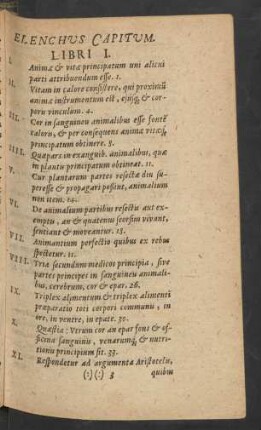 ELENCHVS CAPITVM.
LIBRI I.
I. Animæ & vitæ principatum uni alicui
parti attribuendum esse. 1.
II. Vitam in calore consistere, qui proximũ
animæ instrumentum est, ejusq, & cor-
poru vinculum. 4.
III. Cor in sanguineu animalibus esse fontẽ
caloru, & per consequens animæ vitæq,
principatum obtinere. 5.
IIII. Quæ pars in exanguib. animalibus, quæ
in plantu principatum obtineat. 11.
V. Cur plantarum partes resectæ diu su-
peresse & propagari possint, animalium
non item. 14.
VI. De animalium partibus resectu aut ex-
emptu, an & quatenus seorsim vivant,
sentiant & moveantur. 15.
VII. Animantium perfectio quibus ex rebus
spectetur. 21.
VIII. Tria secundum medicos principia, sive
partes principes in sanguineu animali-
bus, cerebrum, cor & epar. 28.
IX. Triplex alimentum & triplex alimenti
præparatio toti corpori communis, in
ore, in ventre, in epate. 30.
X. Quæstio: Verum cor an epar fons & of-
ficina sanguinis, venarumq, & nutri-
tionis principium sit. 33.
XI. Respondetur ad argumenta Aristotelis,
(:) (:) 3 quibus